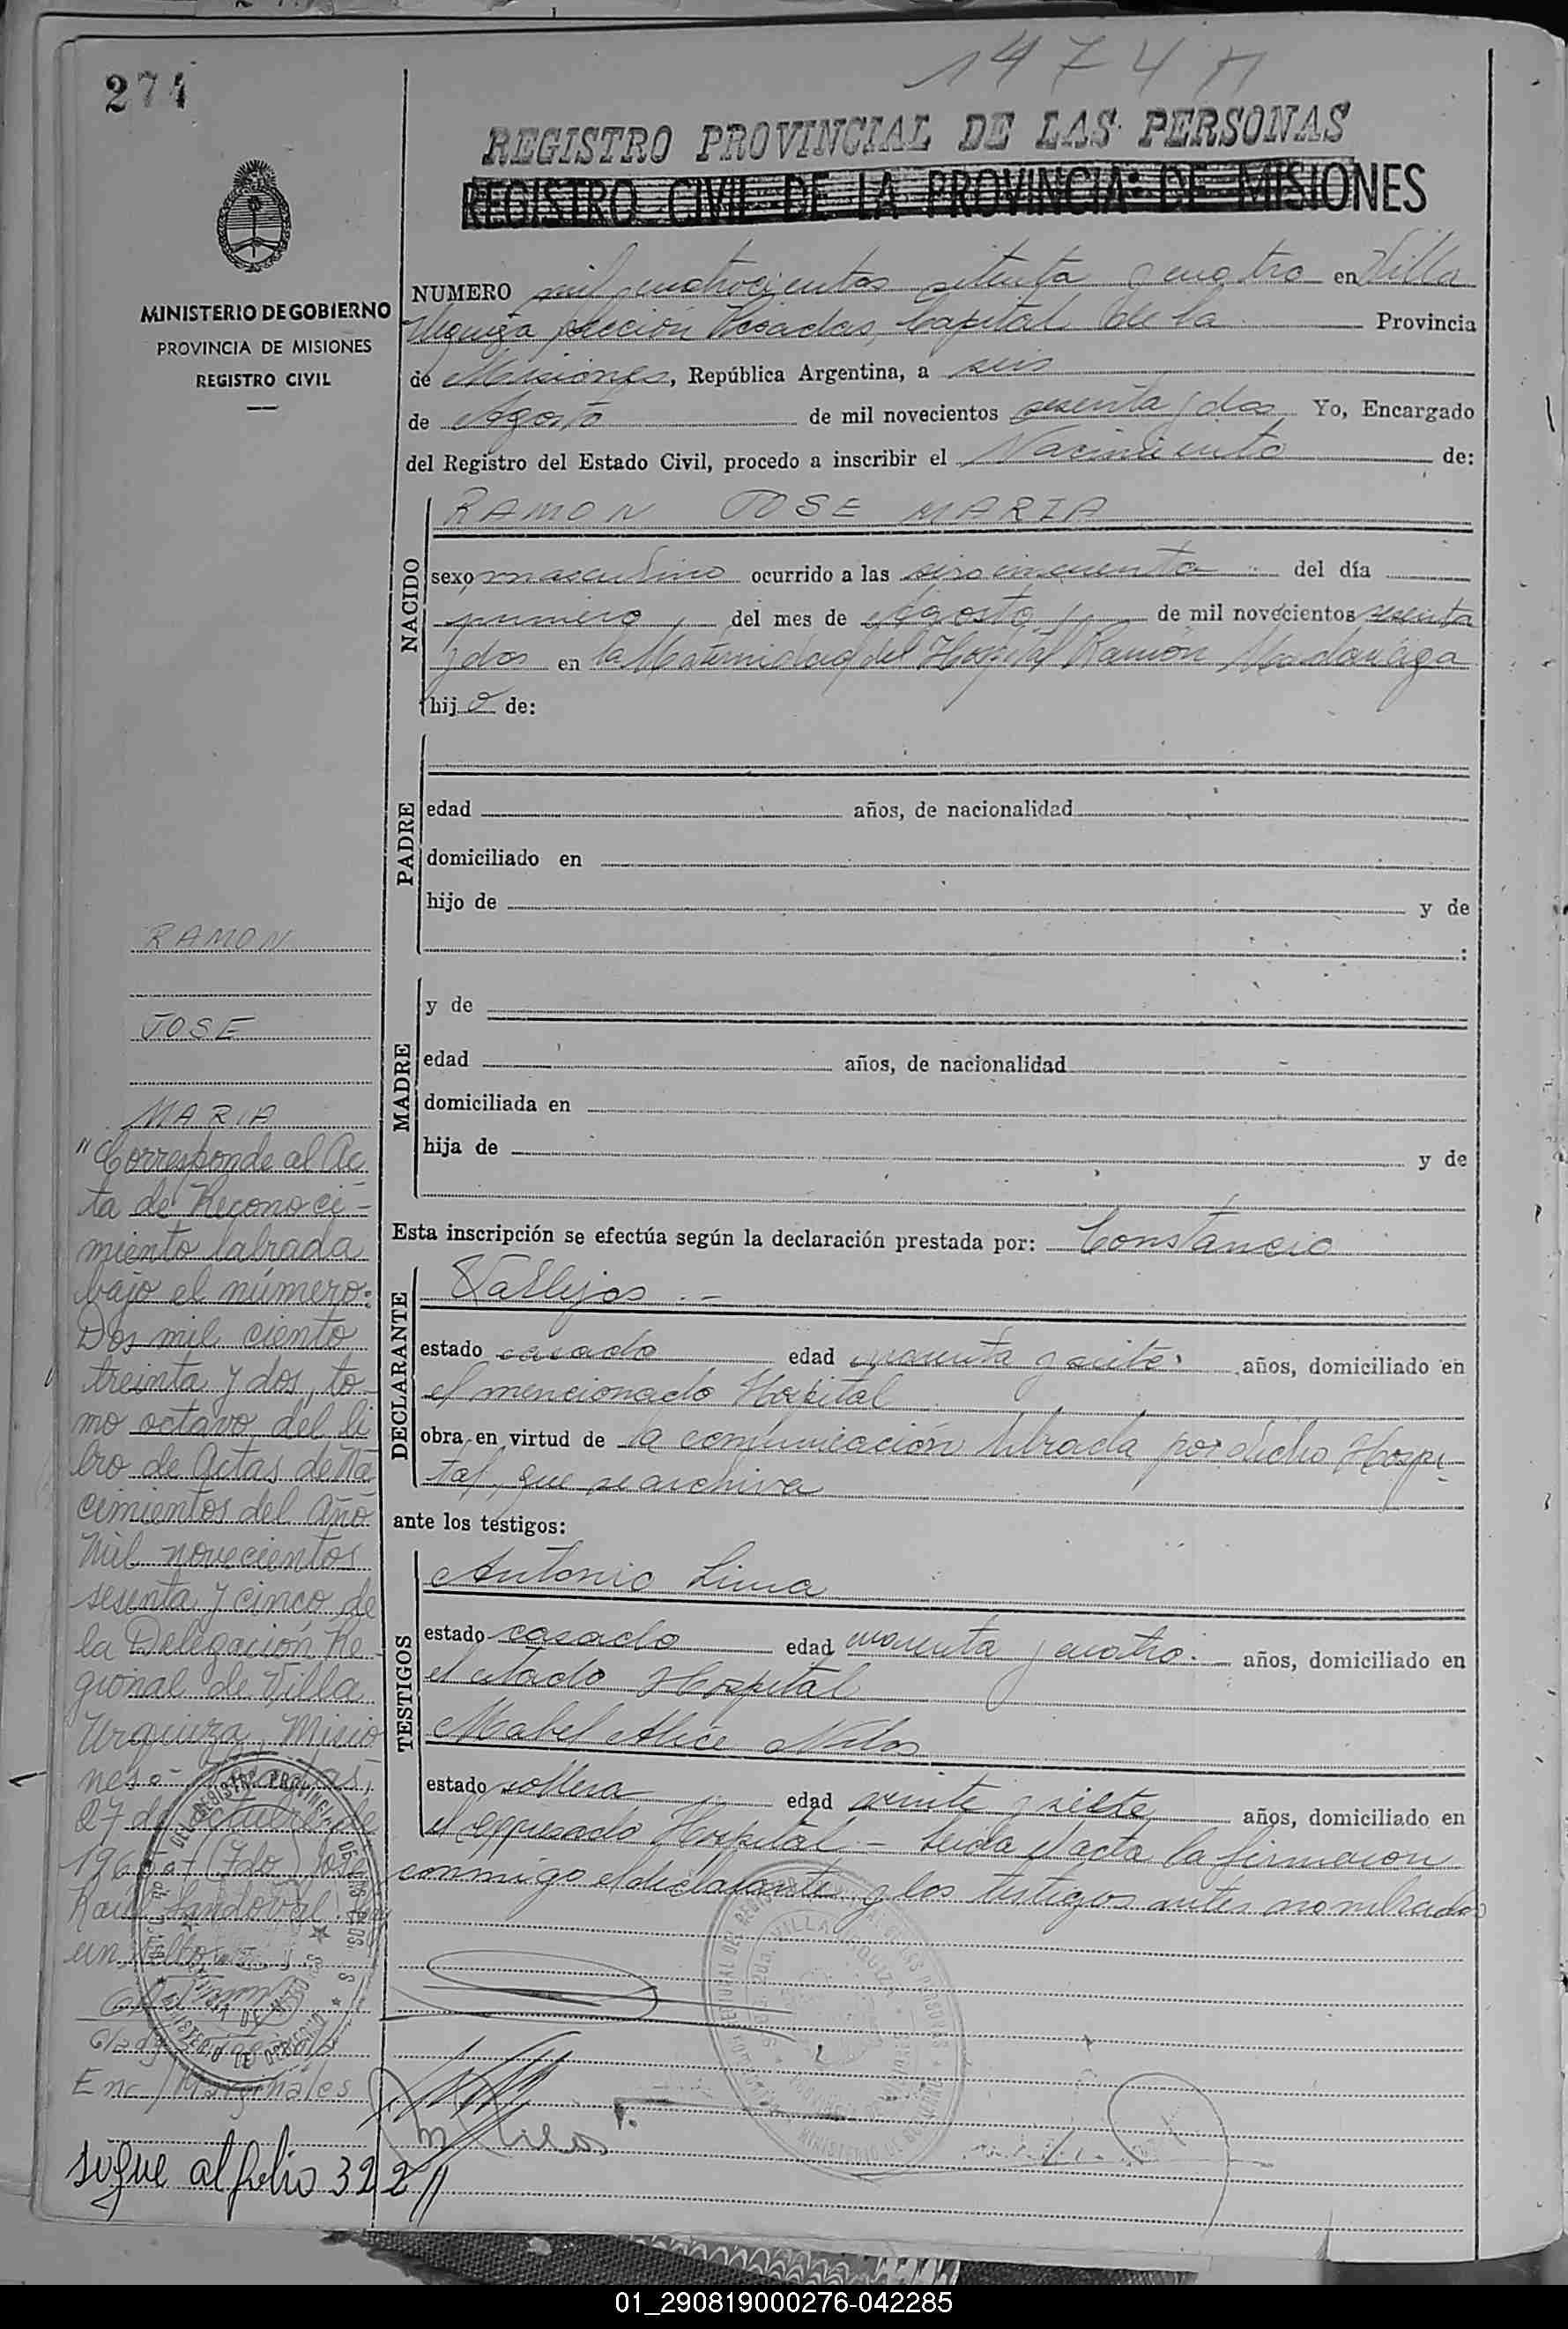 274
1474
REGISTRO PROVINCIAL DE LAS PERSONAS
REGISTRO CIVIL DE LA PROVINCIA DE MISIONES
MINISTERIO DE GOBIERNO
PROVINCIA DE MISIONES
REGISTRO CIVIL
NUMERO mil cuatrocientos setenta y cuatro en Villa
Urquiza sección Posadas, Capital de la Provincia
de Misiones, República Argentina, a seis
de Agosto de mil novecientos sesenta y dos Yo, Encargado
del Registro del Estado Civil, procedo a inscribir el Nacimiento de:
NACIDO
RAMON JOSE MARIA
sexo masculino ocurrido a las del día
primero del mes de Agosto de mil novecientos sesenta
y dos en la Maternidad del Hospital Ramón Madariaga
hijo de:
PADRE
edad años, de nacionalidad
domiciliado en
hijo de y de
:
MADRE
y de
edad años, de nacionalidad
domiciliada en
hija de y de
Esta inscripción se efectúa según la declaración prestada por: Constancio
DECLARANTE
Vallejos .-
estado casado edad años, domiciliado en
el mencionado Hospital
obra en virtud de la comunicación librada por dicho Hospi-
tal, que se archiva
ante los testigos:
TESTIGOS
Antonio Lima
estado casado edad cuarenta y cuatro.- años, domiciliado en
el citado Hospital
Mabel Alice
estado soltera edad veinte y siete años, domiciliado en
el expresado Hospital - Leida el acta la firmaron
conmigo el declarante y los testigos antes nombrados
RAMON
JOSE
MARIA
"Corresponde al Ac
ta de Reconoci-
miento labrada
bajo el número:
Dos mil ciento
treinta y dos, to
mo octavo del li
bro de Actas de Na
cimientos del Año
Mil novecientos
sesenta y cinco de
la Delegación Re
gional de Villa
Urquiza, Misio
nes.- Posadas,
27 de octubre de
1965.- (Fdo) José
Raúl Sandoval.
un sello
Enc/Marginales
sigue al folio 322//
01_290819000276-042285